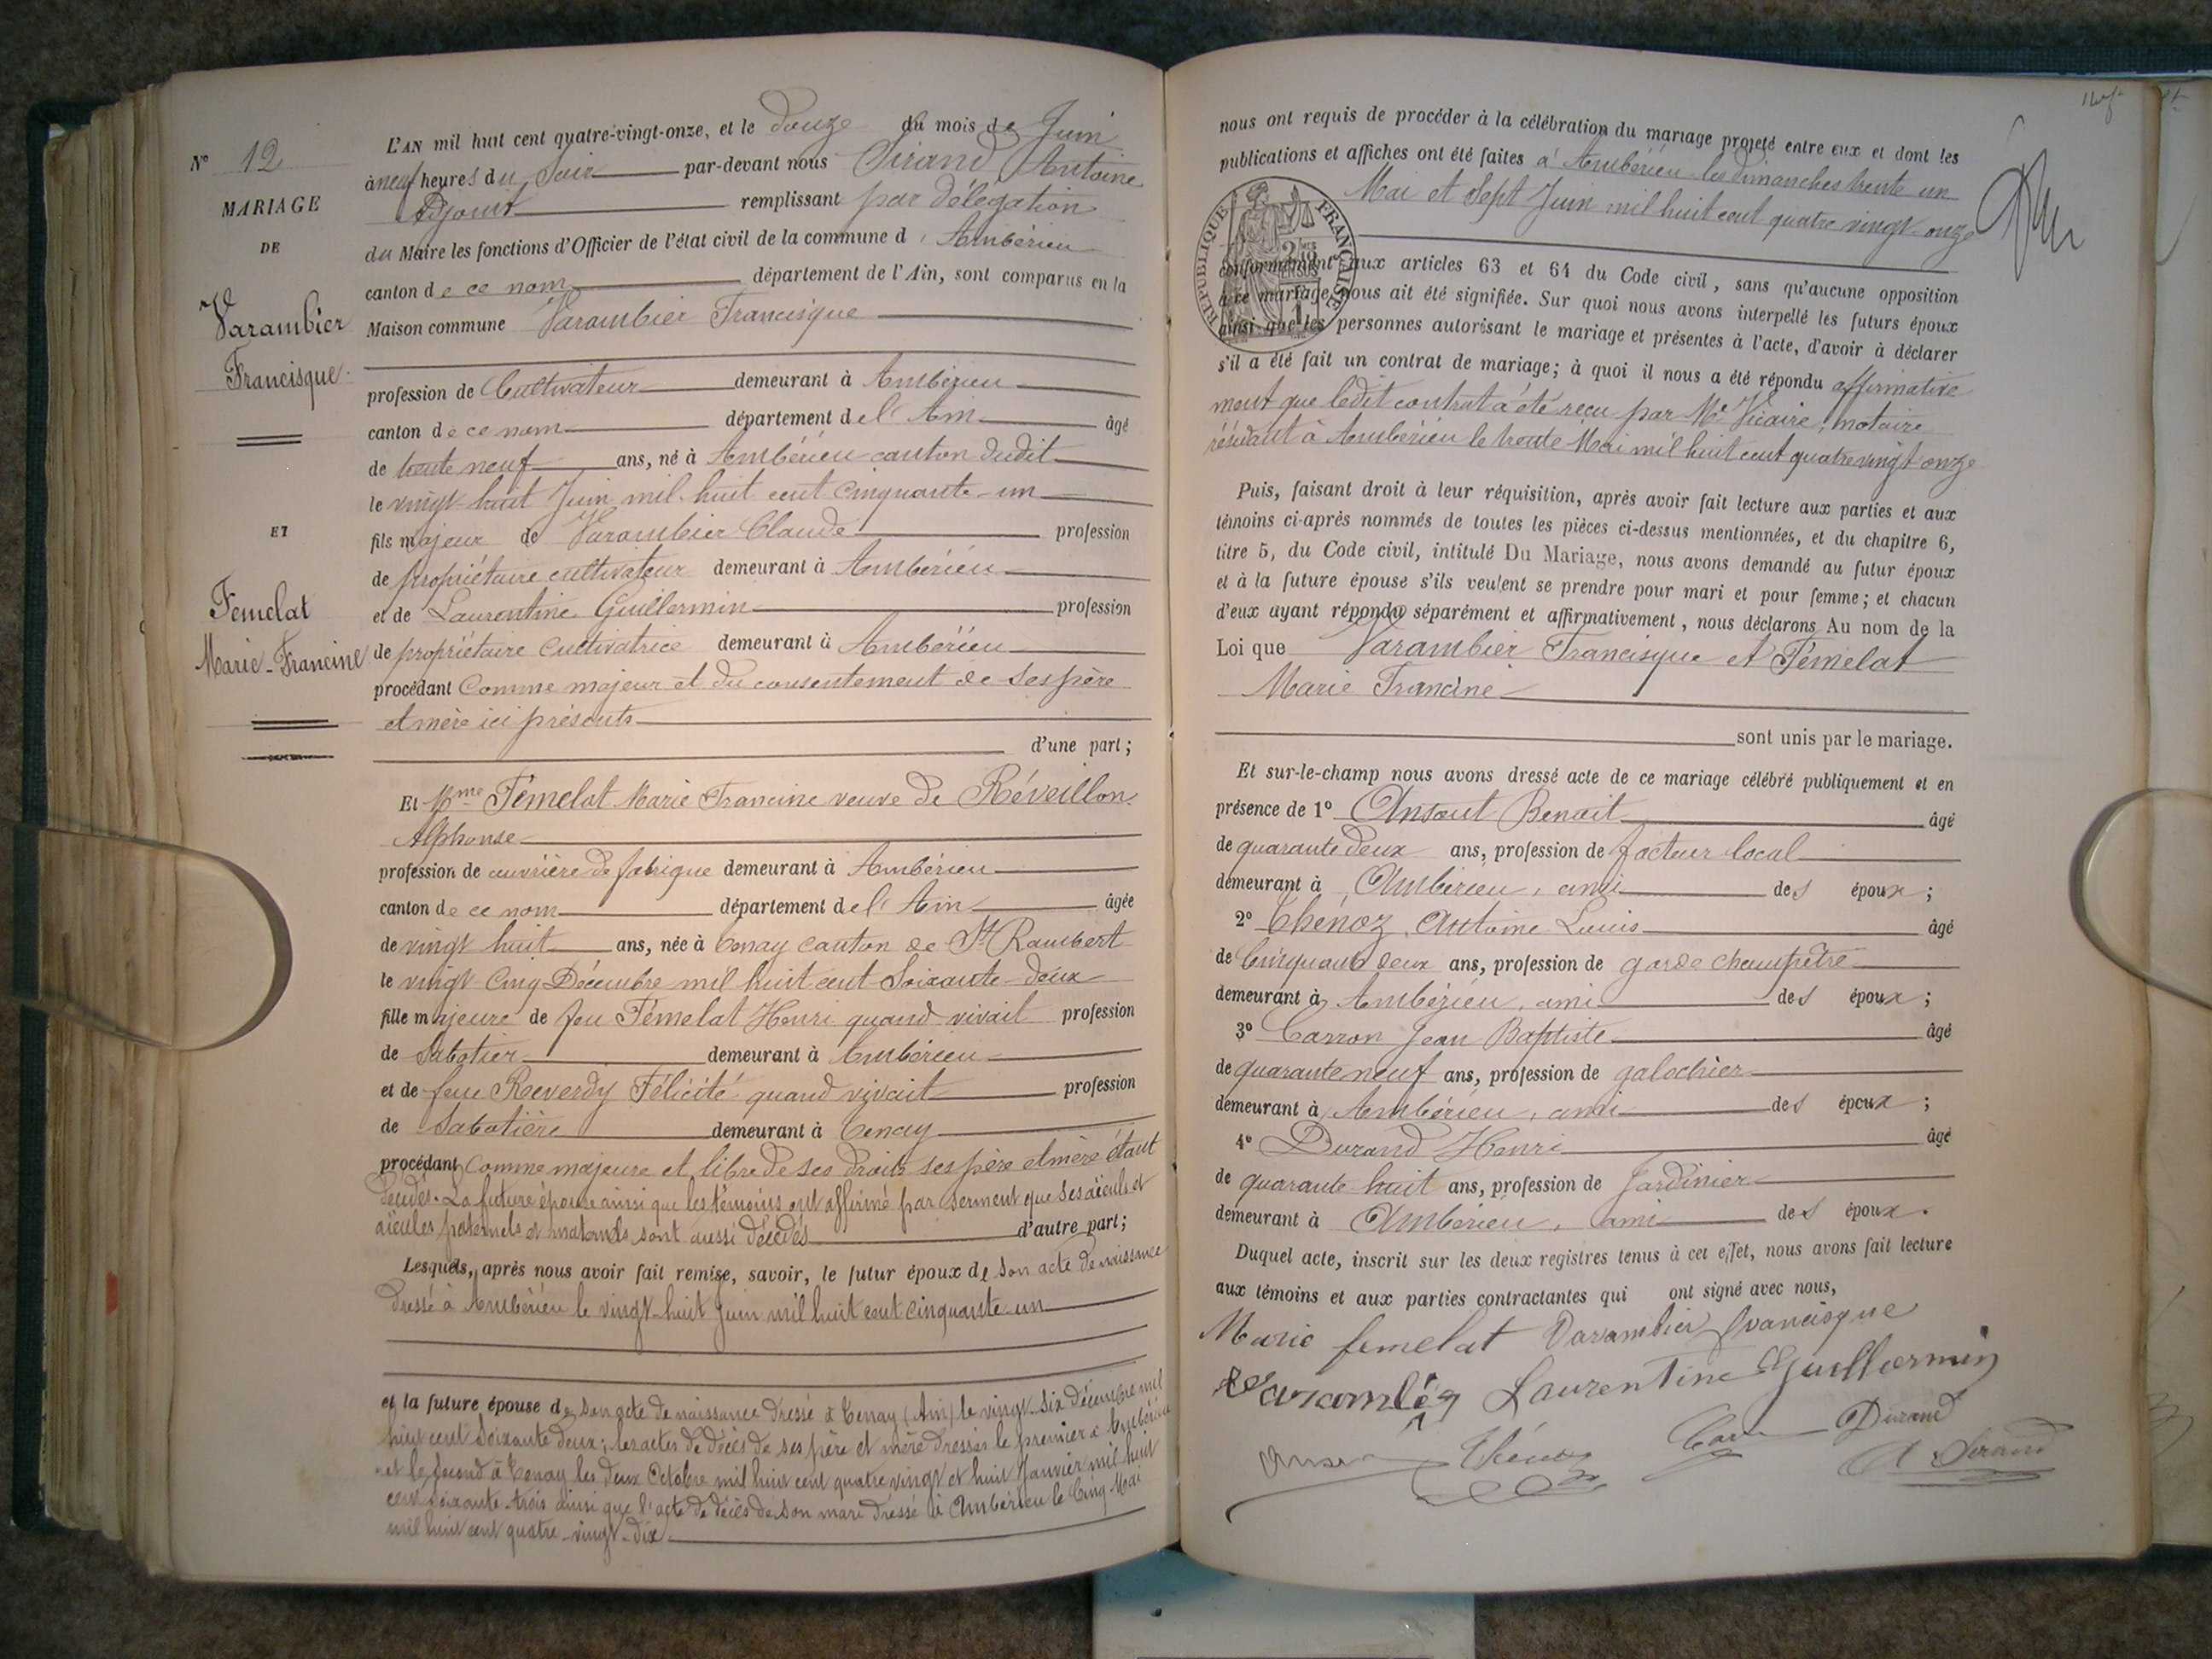 N° 12
MARIAGE
DE
Varambier
Francisque
ET
Femelat
Marie-Francine
L'AN mil huit cent quatre-vingt-onze, et le Douze du mois de Juin
à neuf heures du Soir par-devant nous Sirand Antoine
Adjoint remplissant par délégation
du Maire les fonctions d'Officier de l'état civil de la commune d'Ambérieu
canton de ce nom département de l'Ain, sont comparus en la
Maison commune Varambier Francisque
profession de Cultivateur demeurant à Ambérieu
canton de ce nom département de l'Ain âgé
de trente neuf ans, né à Ambérieu canton dudit
le vingt-huit Juin mil huit cent cinquante-un
fils majeur de Varambier Claude profession
de propriétaire cultivateur demeurant à Ambérieu
et de Laurentine Guillermin profession
de propriétaire cultivatrice demeurant à Ambérieu
procédant Comme majeur et du consentement de ses père
et mère ici présents
d'une part;
Et Mme Fémelat Marie Francine veuve de Réveillon
Alphonse
profession de ouvrière de fabrique demeurant à Ambérieu
canton de ce nom département de l'Ain âgée
de vingt huit ans, née à Tenay canton de St Rambert
le vingt Cinq Décembre mil huit cent Soixante-deux
fille majeure de feu Fémelat Henri quand vivait profession
de Sabotier demeurant à Ambérieu
et de feue Reverdy Félicité quand vivait profession
de Sabotière demeurant à Tenay
procédant Comme majeure et libre de ses droits ses père et mère étant
décédés. La future épouse ainsi que les témoins ont affirmé par serment que ses aïeuls et
aïeules paternels et maternels sont aussi décédés d'autre part;
Lesquels, après nous avoir fait remise, savoir, le futur époux de son acte de naissance
dressé à Ambérieu le vingt-huit Juin mil huit cent cinquante-un
et la future épouse de son acte de naissance dressé à Tenay (Ain) le vingt-six décembre mil
huit cent soixante deux; les actes de décès de ses père et mère dressés le premier à Ambérieu
et le second à Tenay les deux Octobre mil huit cent quatre vingt et huit Janvier mil huit
cent soixante trois ainsi que l'acte de décès de son mari dressé à Ambérieu le Cinq Mai
mil huit cent quatre-vingt-dix
nous ont requis de procéder à la célébration du mariage projeté entre eux et dont les
publications et affiches ont été faites à Ambérieu les dimanches trente un
Mai et Sept Juin mil huit cent quatre vingt-onze
RÉPUBLIQUE FRANÇAISE
conformément aux articles 63 et 64 du Code civil, sans qu'aucune opposition
à ce mariage nous ait été signifiée. Sur quoi nous avons interpellé les futurs époux
ainsi que les personnes autorisant le mariage et présentes à l'acte, d'avoir à déclarer
s'il a été fait un contrat de mariage; à quoi il nous a été répondu affirmative
ment que ledit contrat a été reçu par Me Vicaire, notaire
résidant à Ambérieu le trente Mai mil huit cent quatre vingt onze
Puis, faisant droit à leur réquisition, après avoir fait lecture aux parties et aux
témoins ci-après nommés de toutes les pièces ci-dessus mentionnées, et du chapitre 6,
titre 5, du Code civil, intitulé Du Mariage, nous avons demandé au futur époux
et à la future épouse s'ils veulent se prendre pour mari et pour femme; et chacun
d'eux ayant répondu séparément et affirmativement, nous déclarons Au nom de la
Loi que Varambier Francisque et Fémelat
Marie Francine
sont unis par le mariage.
Et sur-le-champ nous avons dressé acte de ce mariage célébré publiquement et en
présence de 1° Ansout Benoit âgé
de quarante deux ans, profession de facteur local
demeurant à Ambérieu, ami des époux;
2° Thénoz Antoine Louis âgé
de Cinquante deux ans, profession de garde champêtre
demeurant à Ambérieu, ami des époux;
3° Carron Jean Baptiste âgé
de quarante neuf ans, profession de galochier
demeurant à Ambérieu, ami des époux;
4° Durand Henri âgé
de quarante huit ans, profession de Jardinier
demeurant à Ambérieu, ami des époux.
Duquel acte, inscrit sur les deux registres tenus à cet effet, nous avons fait lecture
aux témoins et aux parties contractantes qui ont signé avec nous,
Marie femelat Varambier francisque
Laurentine Guillermin
Durand
A Sirand